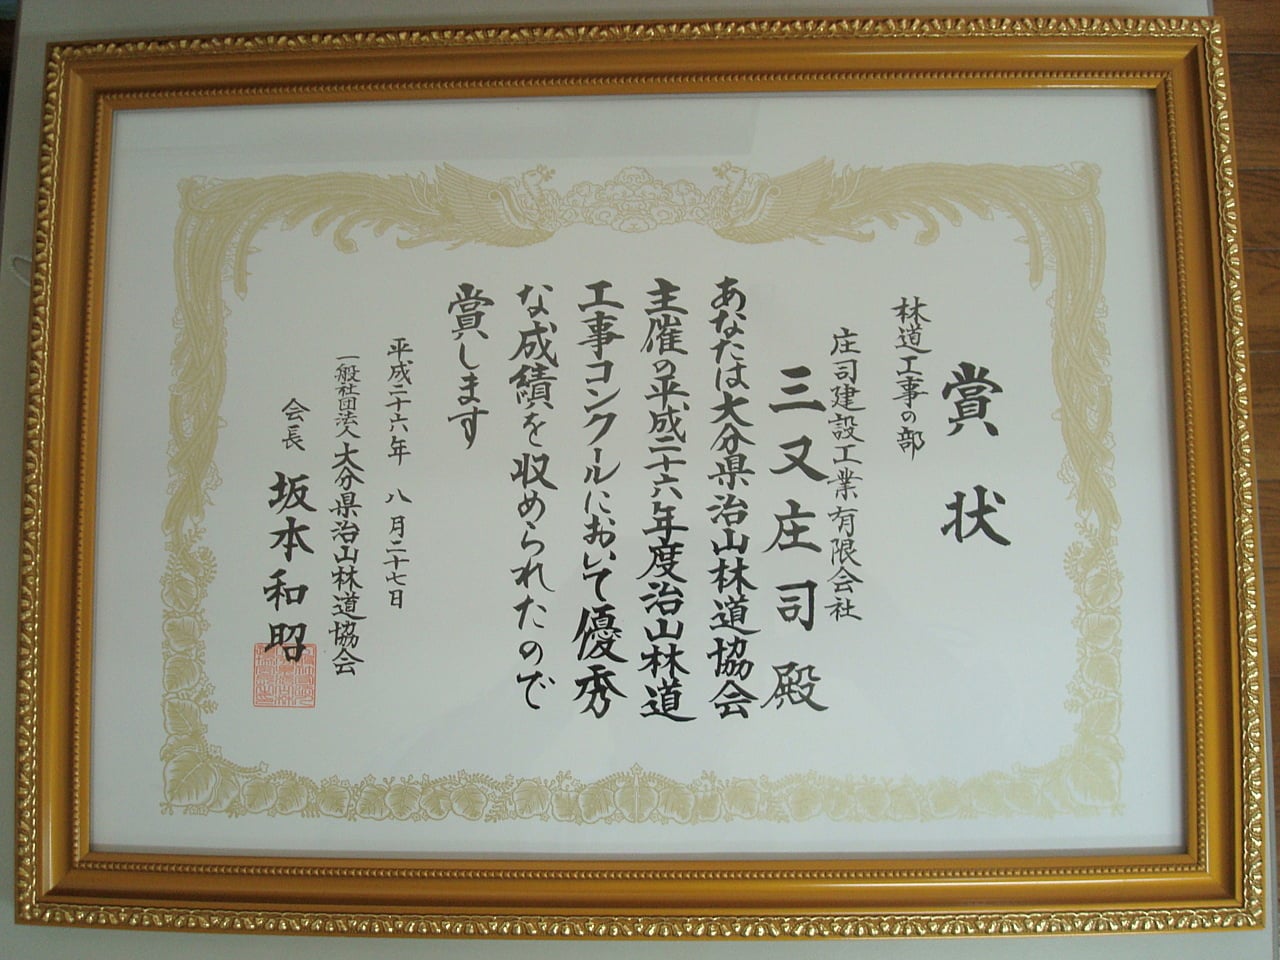 賞状
林道工事の部
庄司建設工業有限会社
三又庄司殿
あなたは大分県治山林道協会
主催の平成二十六年度治山林道
工事コンクールにおいて優秀
な成績を収められたので
賞します
平成二十六年八月二十七日
一般社団法人大分県治山林道協会
会長坂本和昭